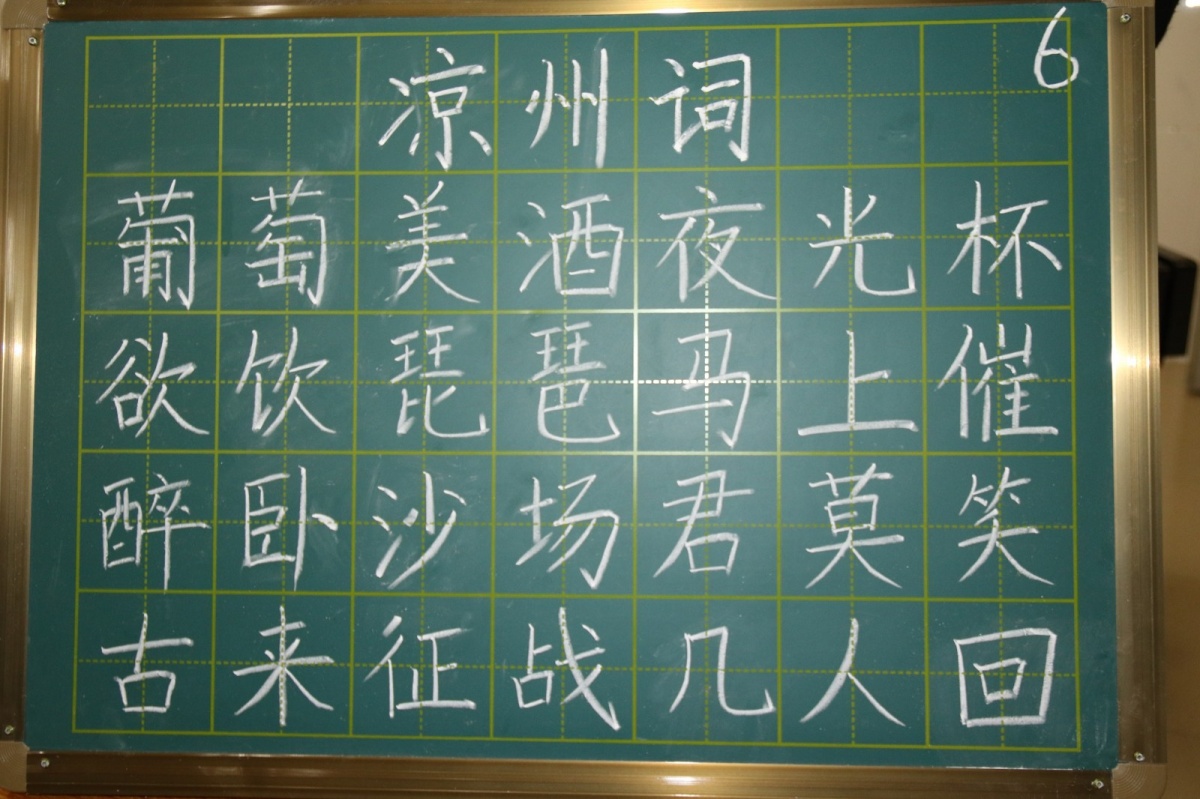 6
凉州词
葡萄美酒夜光杯
欲饮琵琶马上催
醉卧沙场君莫笑
古来征战几人回